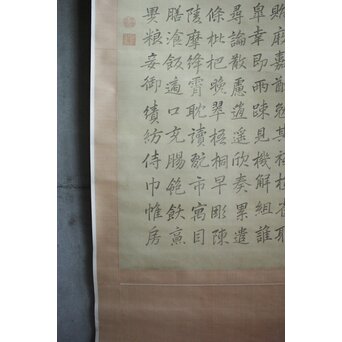 貽厥嘉猷勉其祗植省躬
皐幸即兩踈見機解組誰
尋論散慮逍遙欣奏累遣
條枇杷晚翠梧桐早彫陳
陵摩絳霄耽讀翫市寓目
膳湌飯適口充腸飽飫烹
異粮妾御績紡侍巾帷房